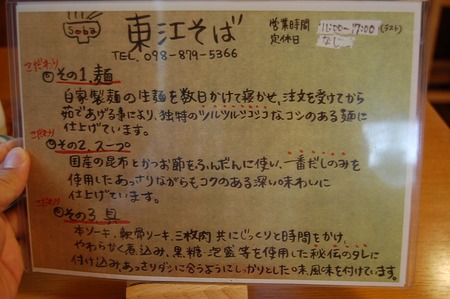 Soba
東江そば
営業時間 11:00-17:00 (ラスト)
定休日 なし
TEL. 098-879-5366
こだわり
その1.麺
自家製麺の生麺を数日かけて寝かせ、注文を受けてから
茹であげる事により、独特のツルツルシコシコな、コシのある麺に
仕上げています。
こだわり
その2.スープ
国産の昆布とかつお節をふんだんに使い、一番だしのみを
使用したあっさりながらもコクのある深い味わいに
仕上げています。
こだわり
その3 具
本ソーキ、軟骨ソーキ、三枚肉 共にじっくりと時間をかけ、
やわらかく煮込み、黒糖・泡盛等を使用した秘伝のタレに
付け込み、あっさりダシに合うようにしっかりとした味、風味を付けています。